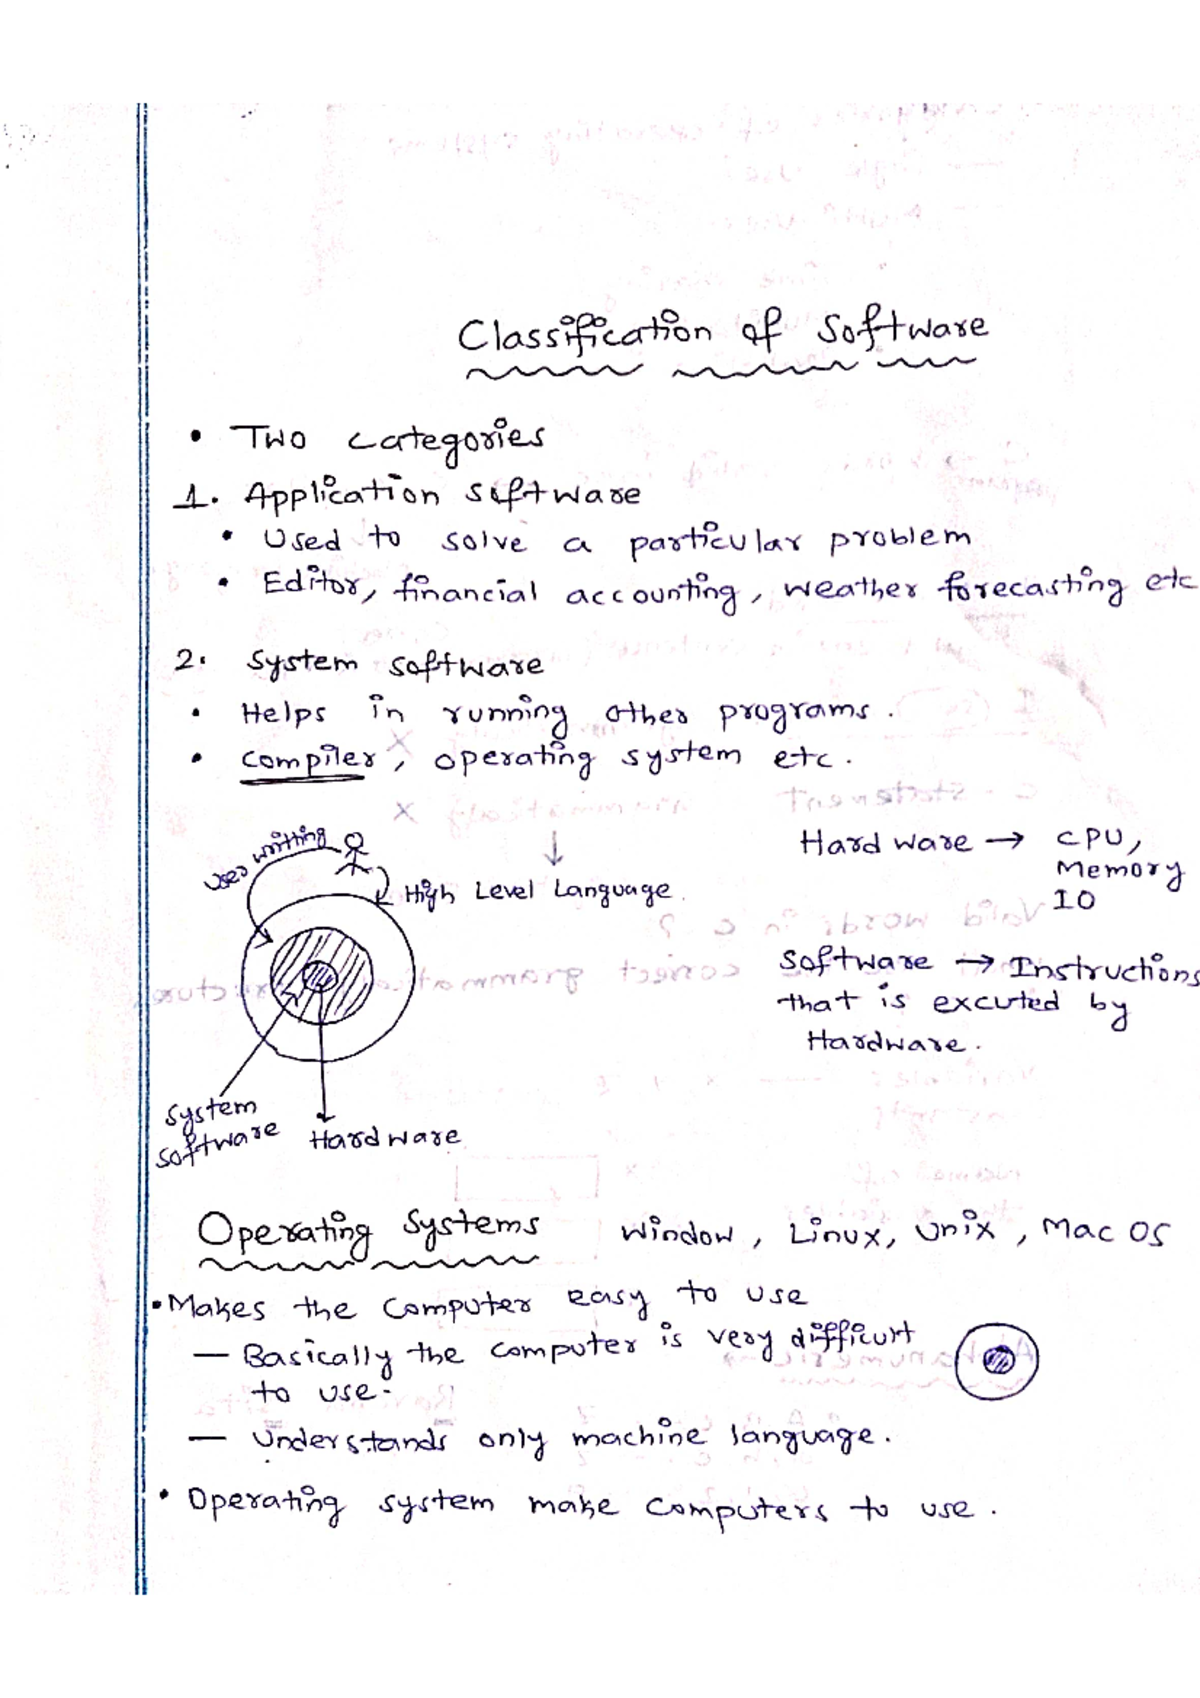 Classification of Software
• Two categories
1. Application software
• Used to solve a particular problem
• Editor, financial accounting, weather forecasting etc
2. System software
• Helps in running other programs.
• compiler, operating system etc.
user writting
↓
High Level Language.
Hardware → CPU,
Memory
IO
Software → Instructions
that is excuted by
Hardware.
System
software
Hardware
Operating Systems Window, Linux, Unix, Mac OS
• Makes the computer easy to use
— Basically the computer is very difficult
to use.
— Understands only machine language.
• Operating system make computers to use.